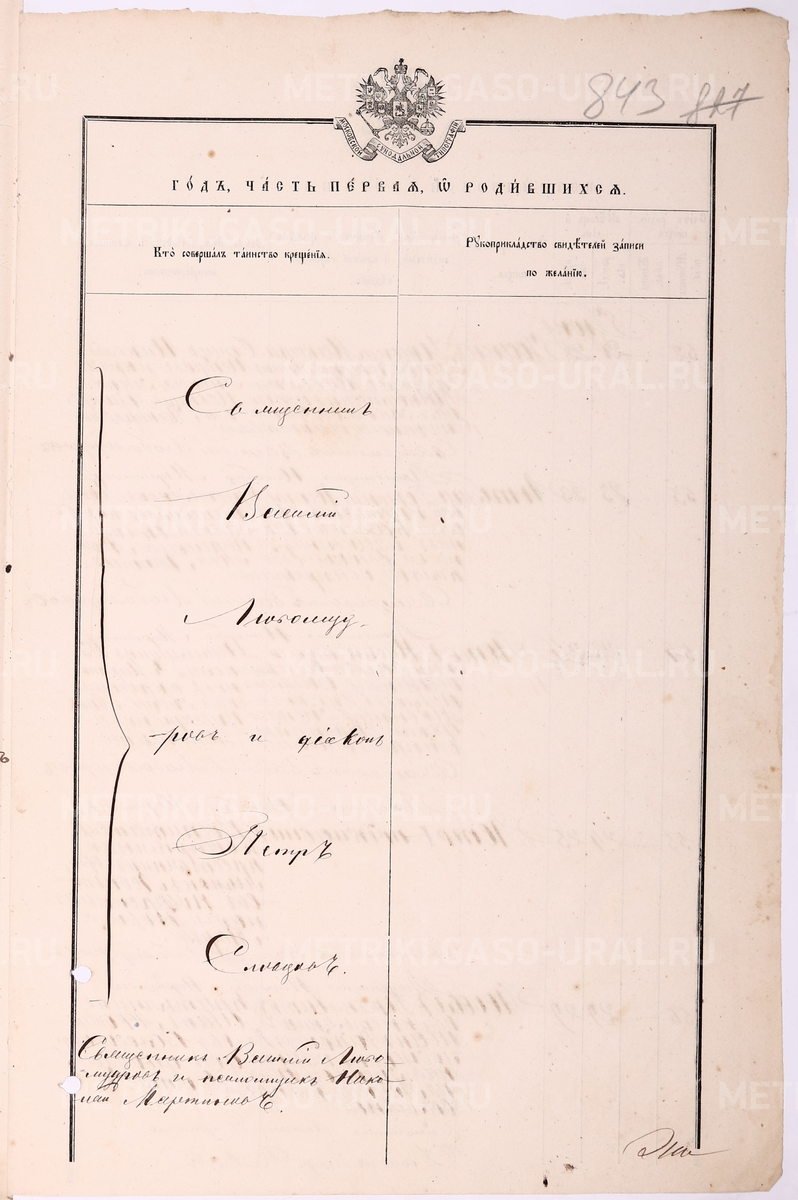 843 827
МОСКОВСКОЙ СѴНОДАЛЬНОЙ ТИПОГРАФІИ
ГО́ДЪ, ЧА́СТЬ ПЕ́РВАѦ, Ѡ҆ РОДИ́ВШИХСѦ.
Кто̀ соверша́лъ та́инство креще́нїѧ.
Рꙋкоприкла́дство свидѣ́телей за́писи
по жела́нїю.
Священникъ
Василій
Любомуд-
-ровъ и діаконъ
Петръ
Словцовъ.
Священникъ Василій Любо-
мудровъ и псаломщикъ Нико-
лай Мартиновъ.
METRIKI.GASO-URAL.RU